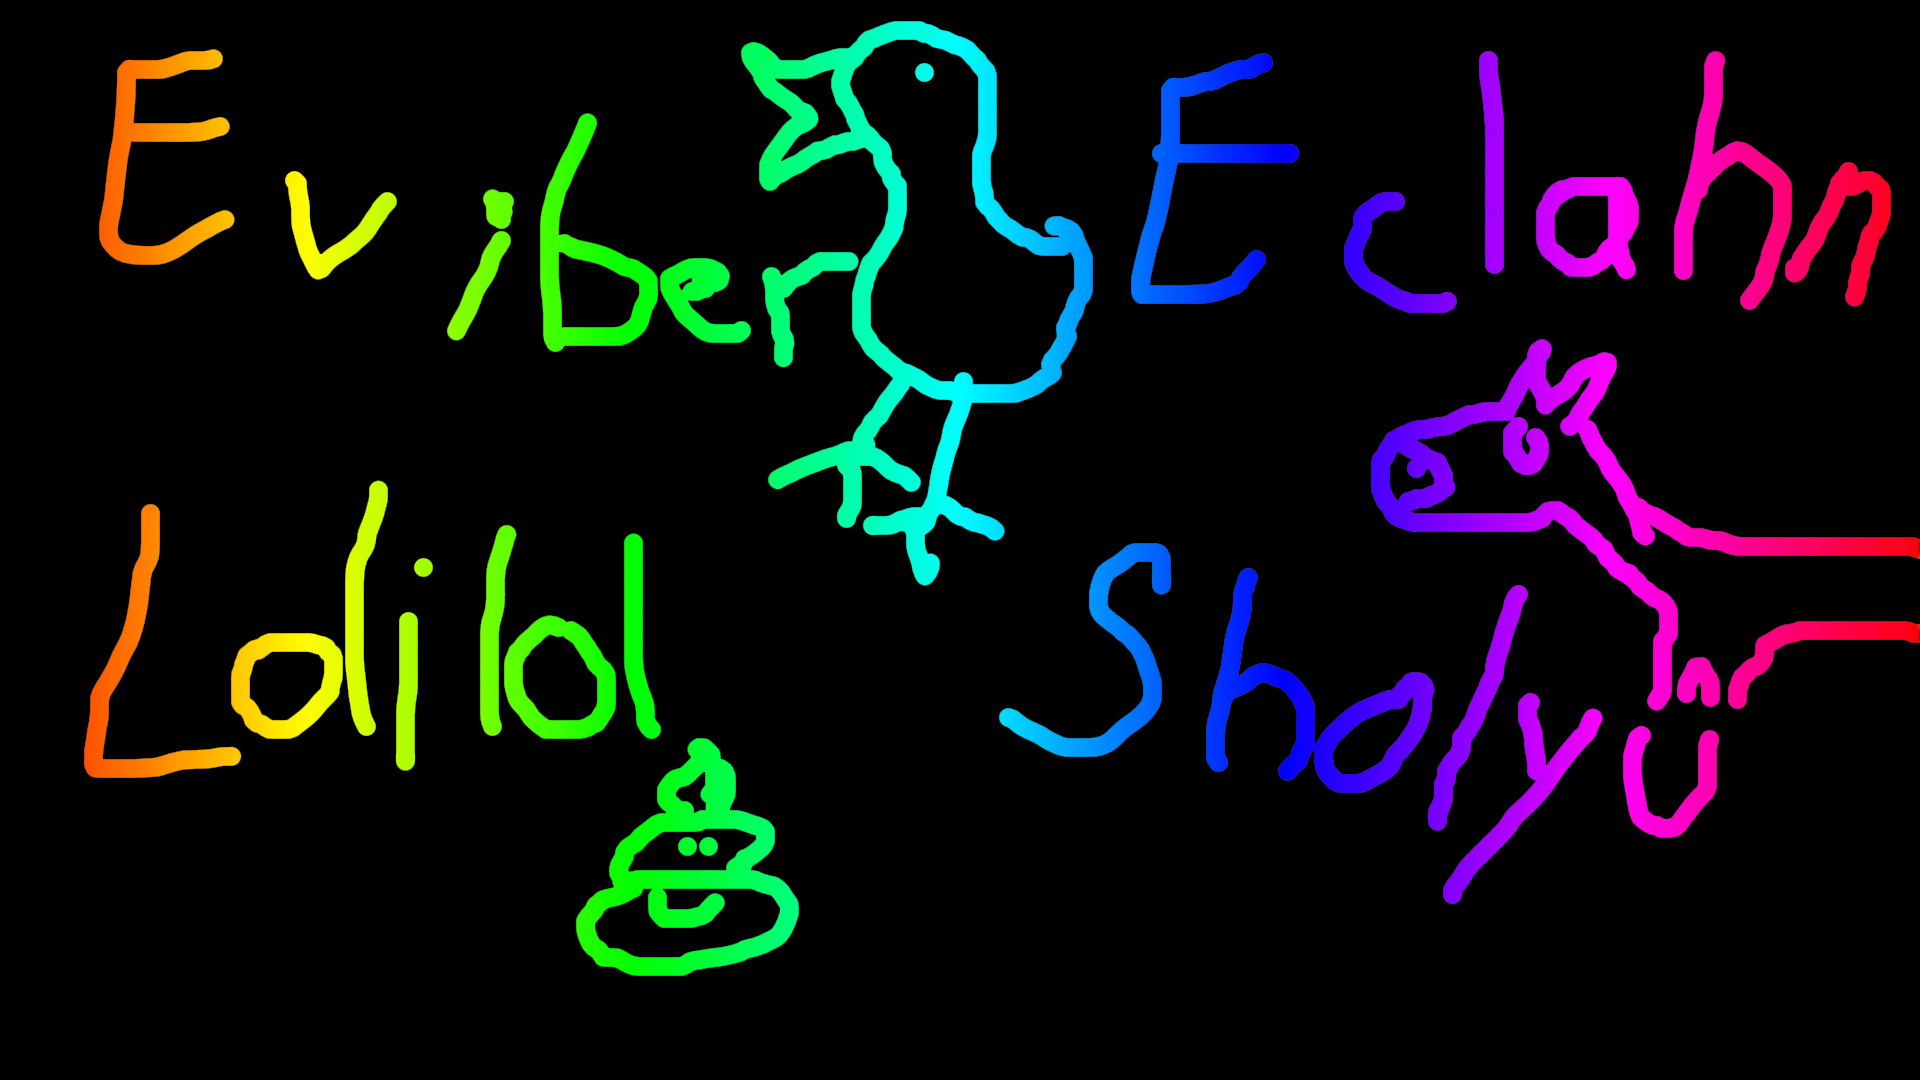 Eviber Eclahn
Lolilol Sholyu